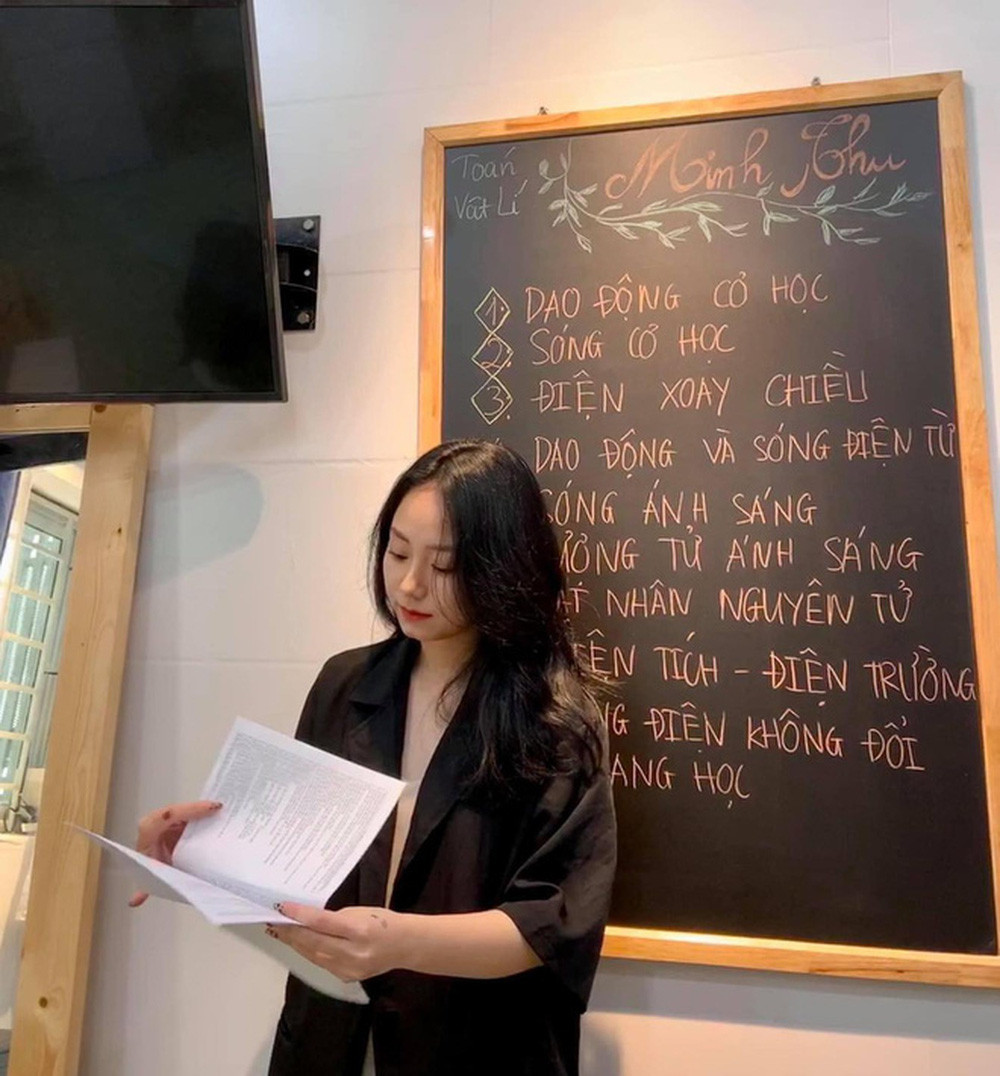 Toán
Vật Lí
Minh Thu
1. DAO ĐỘNG CƠ HỌC
2. SÓNG CƠ HỌC
3. ĐIỆN XOAY CHIỀU
DAO ĐỘNG VÀ SÓNG ĐIỆN TỪ
SÓNG ÁNH SÁNG
ƯỢNG TỬ ÁNH SÁNG
NHÂN NGUYÊN TỬ
IỆN TÍCH - ĐIỆN TRƯỜNG
NG ĐIỆN KHÔNG ĐỔI
ANG HỌC